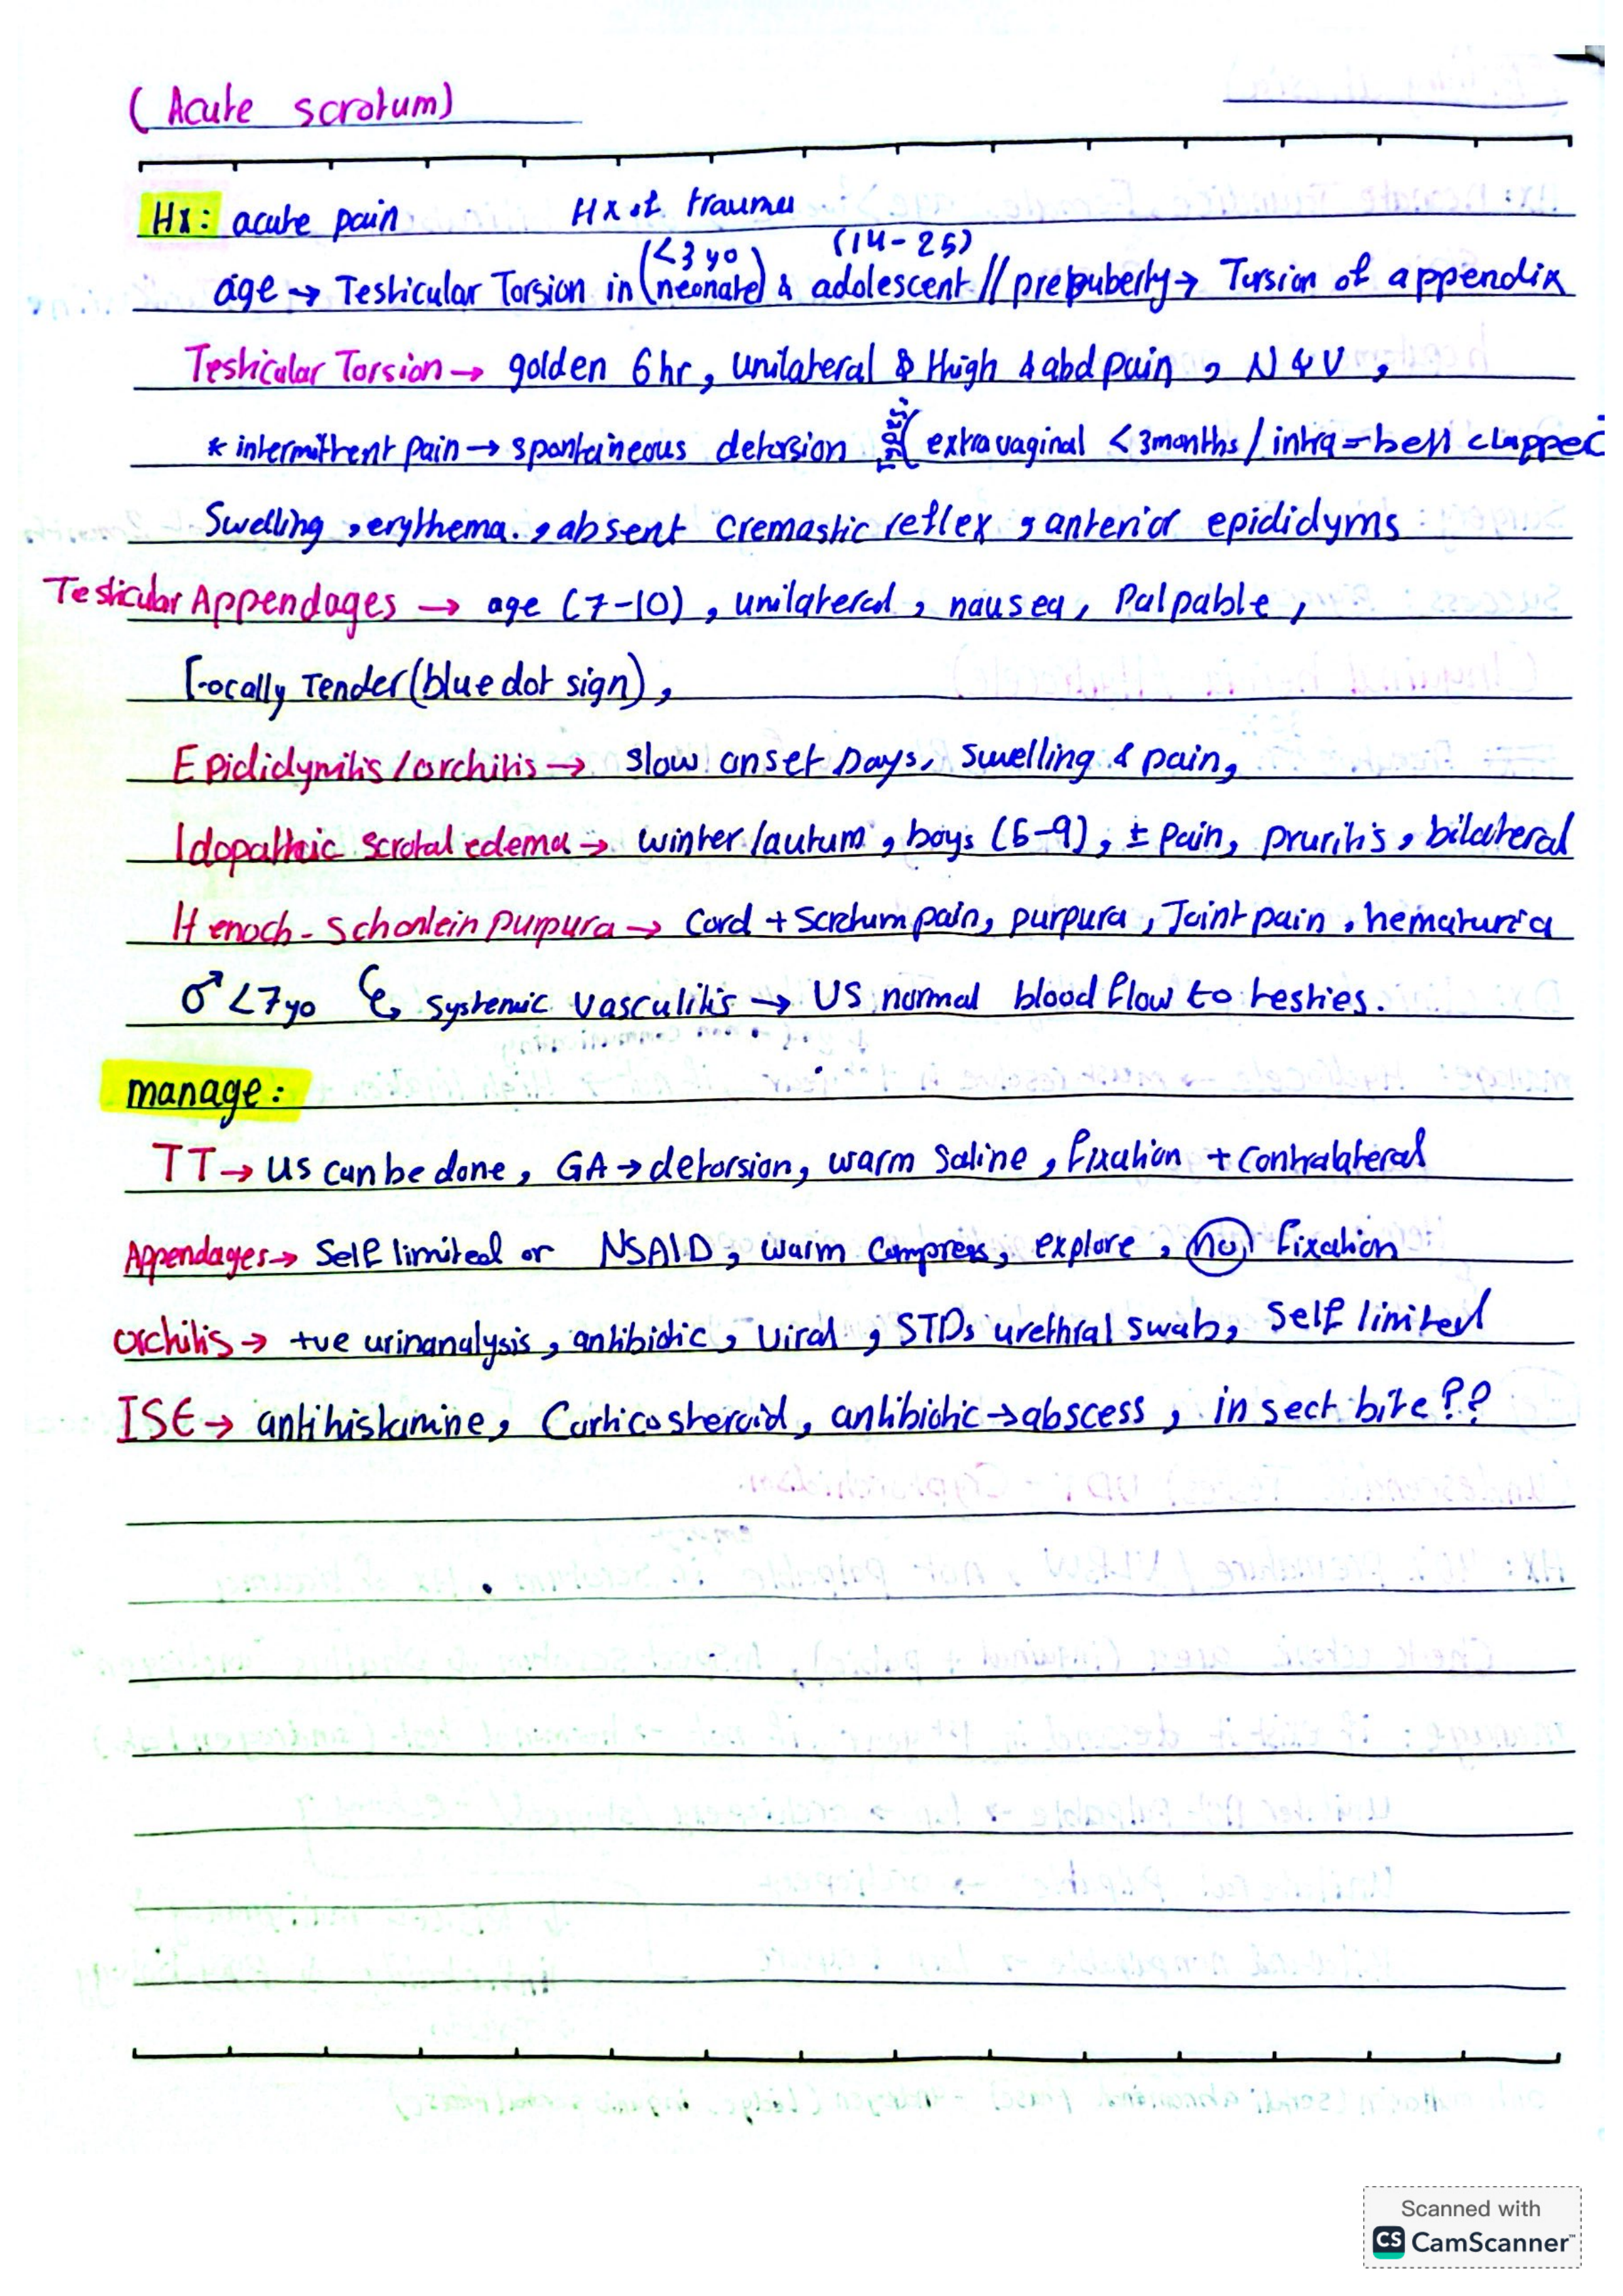 (Acute scrotum)
Hx: acute pain Hx of trauma
(<3 yo) (14-25)
age → Testicular Torsion in (neonate) & adolescent // prepuberty → Torsion of appendix
Testicular Torsion → golden 6 hr, unilateral & thigh & abd pain, N & V,
* intermittent pain → spontaineous detorsion (extravaginal <3months / intra = bell clapper
Swelling, erythema, absent cremastic reflex, anterior epididyms
Testicular Appendages → age (7-10), unilateral, nausea, Palpable,
Focally Tender (blue dot sign),
Epididymitis/orchitis → slow onset Days, Swelling & pain,
Idopathic scrotal edema → winter/autum, boys (5-9), ± pain, pruritis, bilateral
Henoch-Schonlein purpura → Cord + Scrotum pain, purpura, Joint pain, hematuria
♂ <7yo ↳ systemic vasculitis → US normal blood flow to testies.
manage:
TT → US can be done, GA → detorsion, warm saline, fixation + contralateral
Appendages → Self limited or NSAID, warm compress, explore, no fixation
orchitis → +ve urinanalysis, antibiotic, viral, STDs urethral swab, self limited
ISE → antihistamine, Corticosteroid, antibiotic → abscess, insect bite??
Scanned with
CS CamScanner